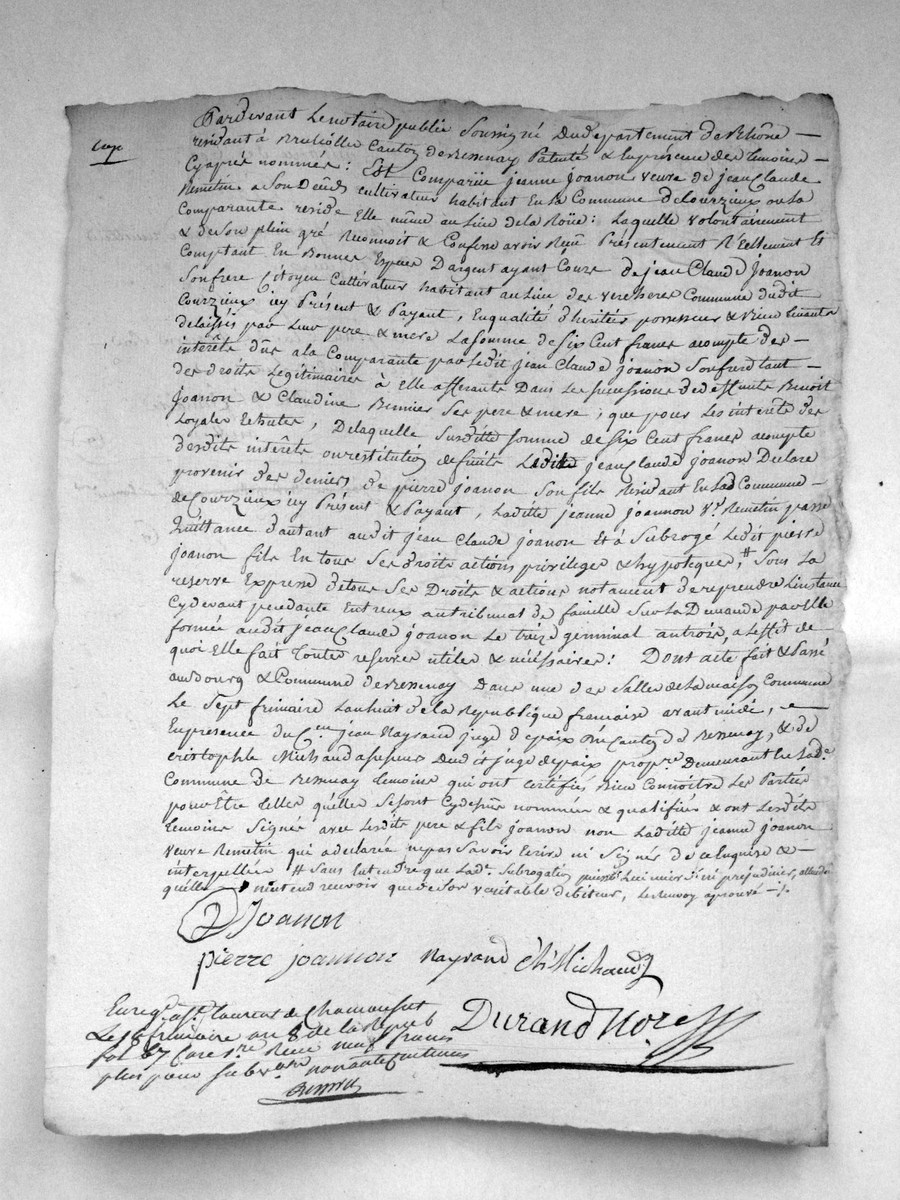 Pardevant Le notaire public Soussigné Du departement du Rhône —
residant à Brulliolle Canton de Bessenay Patenté & En presence des temoins —
Cy après nommés : Est Comparüe jeanne Joanon veuve de jean Claude
Remetin a Son Deuds cultivateur habitant En La Commune de Courzieux ou La
Comparante reside Elle même au Lieu de la Roüe : Laquelle volontairement
& de Son plein gré Reconnoit & Confesse avoir Reçu Présentement Réellement Et
Comptant En Bonnes Espèces D'argent ayant Cours De jean Claude Joanon
Son frere Citoyen Cultivateur habitant au Lieu des vercheres Commune dudit
Courzieux icy Présent & Payant, En qualité d'heritiér possesseur & Bien tenants
delaissés par Leur pere & mere La Somme de Six Cent francs acompte des —
interêts dûs a la Comparante par Ledit jean Claude joanon Son frere tant —
des droits Legitimaires à Elle afferants Dans Les successions de deffunts Benoit
Joanon & Claudine Bernier Ses pere & mere, que pour Les interêts des
Loyales Echutes, De laquelle Susditte Somme de Six Cent francs acompte
desdits interêts ou restitution de fruits Ledit jean Claude joanon Declare
provenir des deniers de pierre joanon Son fils Residant En Lad Commune —
de Courzieux icy Présent & Payant, Laditte jeanne joannon Ve Remetin passe
Quittance d'autant audit jean Claude joanon Et à Subrogé Ledit pierre
joanon fils En tous Ses droits actions privileges & hypoteques, # Sous La
reserve Expresse de tous Ses Droits & actions notament de reprendre L'instance
Cy devant pendante Entreux au tribunal de famille Sur La Demande par Elle
formée audit jean Claude joanon Le treize germinal an trois, a L'effet de —
quoi Elle fait toutes reserves utiles & nécéssaires : Dont acte fait & Passé
au bourg & Commune de Bessenay Dans une des Salles de La maison Commune
Le Sept frimaire L'an huit de la Republique francaise avant midi, —
En presence du Cen jean Nayrand juge de paix Du Canton de Bessenay, & de
Cristophle Michaud assesseur Dudit juge de paix propre Demeurant En Lade
Commune De Bessenay temoins qui ont certifiés Bien Connoitre Les Parties
pour Être telles qu'elles Se Sont Cy dessus nommées & qualifiées & ont Lesdits
temoins Signés avec Lesdits pere & fils Joanon non Laditte jeanne joanon
veuve Remetin qui a declarée ne pas Savoir Ecrire ni Signer de ce Enquise &
interpellée # Sans Entendre que Lade Subrogation puisse Lui nuir ni prejudicier, attendu
qu'elle n'entend recevoir que de Son veritable debiteur, Le renvoy aprouvé —
Joanon
pierre joannon Nayrand Ch Michaud
Enregé a St Laurent de Chamousset
Le 18 frimaire an 8 de la Repub
fol 87 Care Reçu neuf francs
plus pour Subvon nonante Centimes
Durand Nore